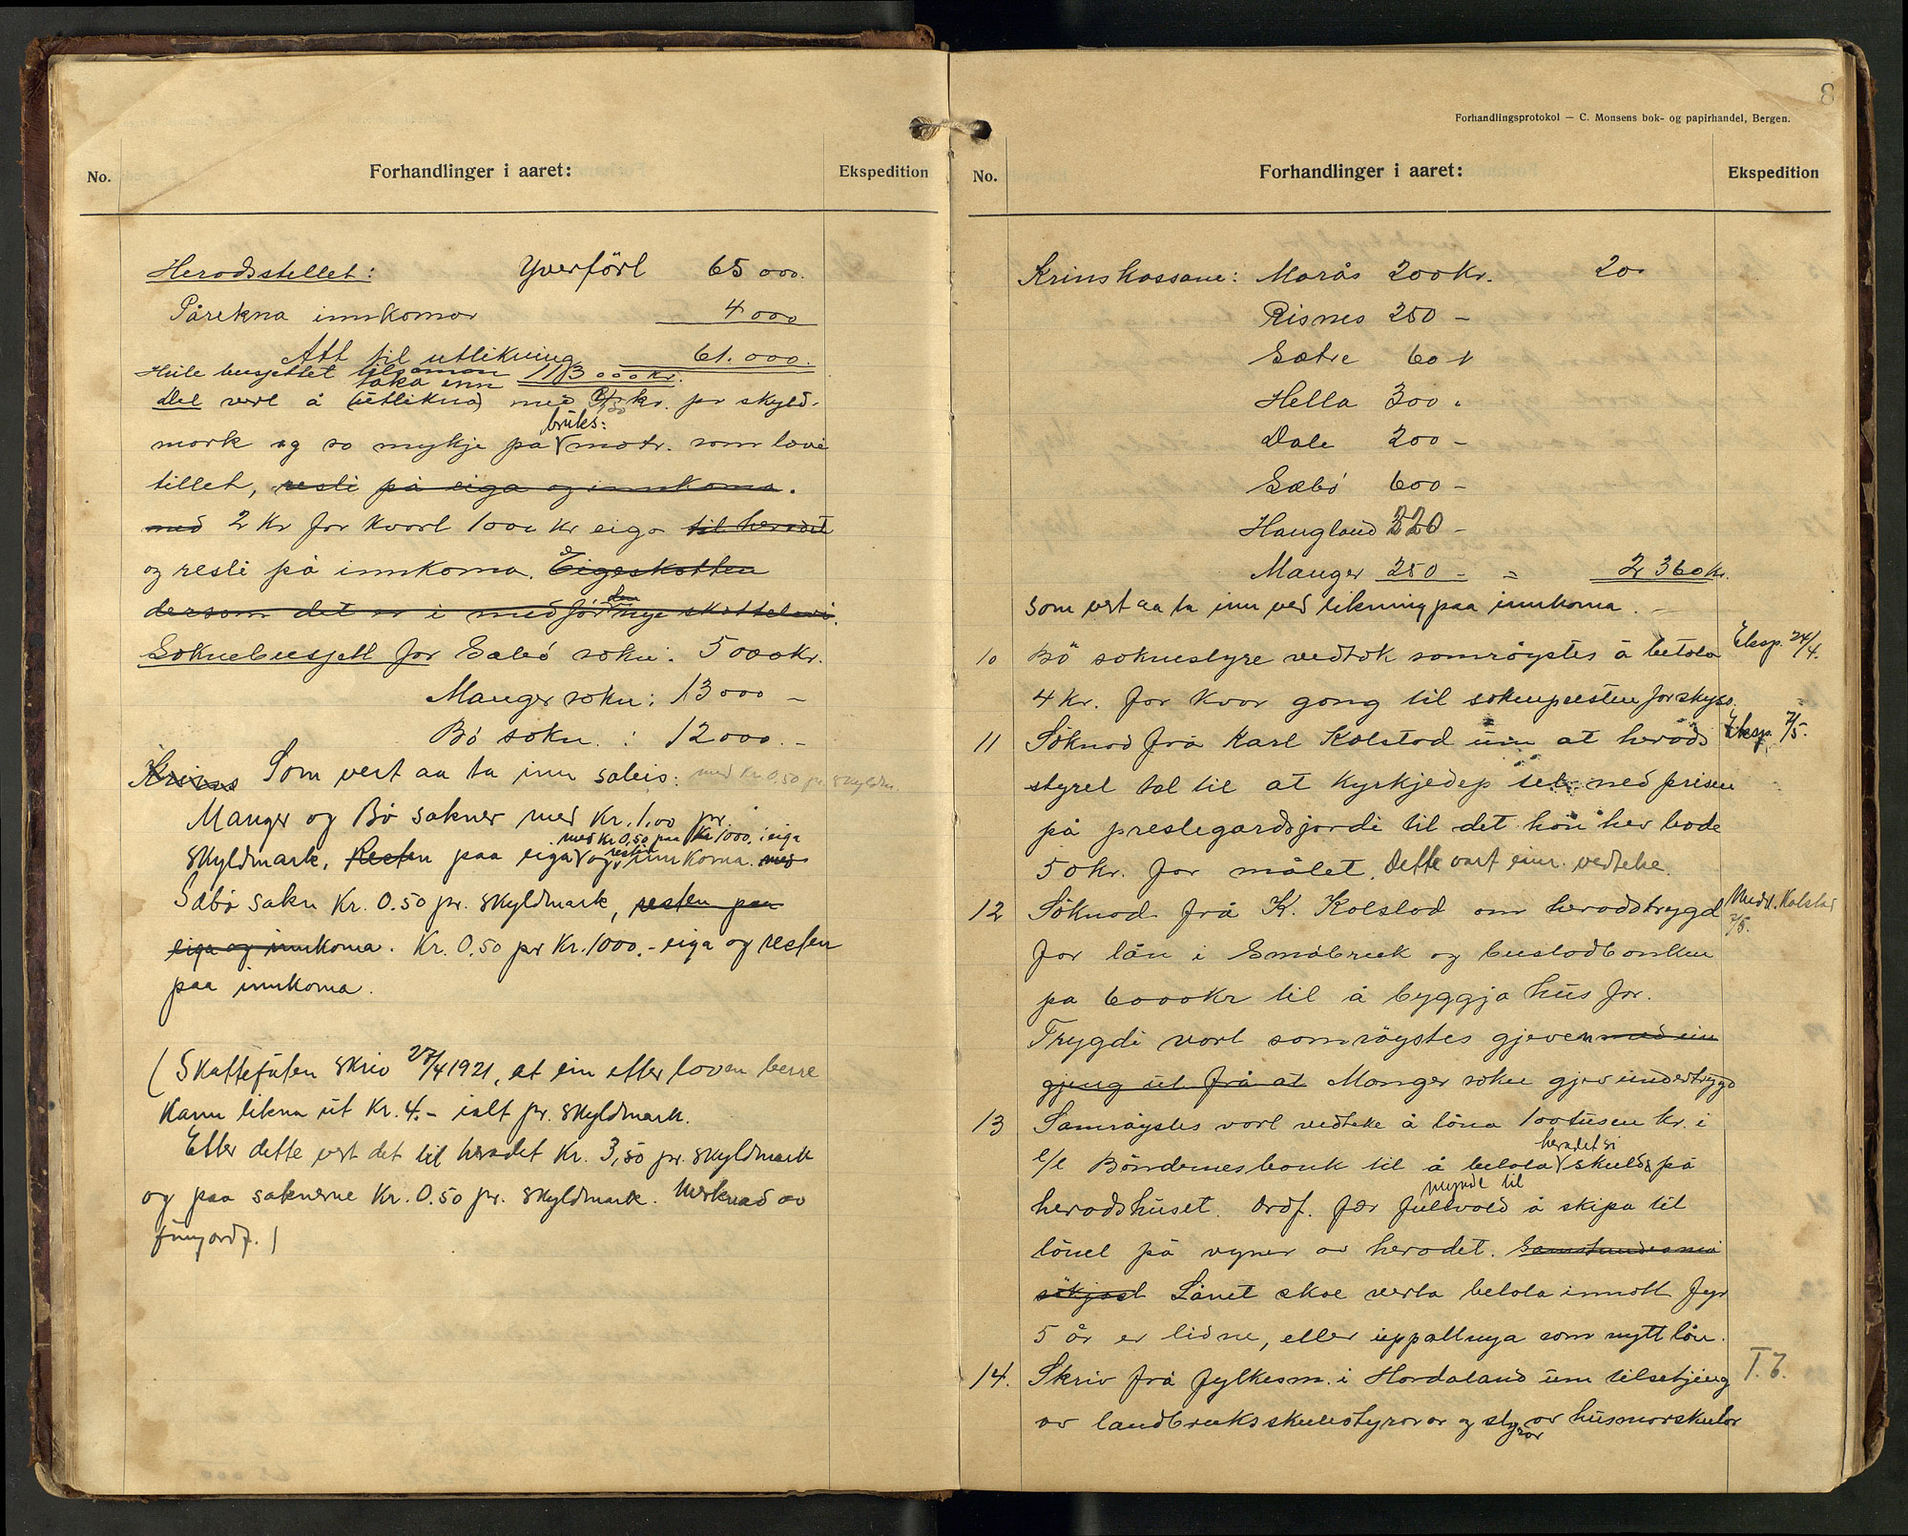 No.
Forhandlinger i aaret:
Ekspedition
Heradsstellet: Yverfört 65 000.
Pårekna innkomor 4 000
Att til utlikning 61.000.
Heile budsjettet tilsaman 113 000 kr.
taka inn
Det vert å (utlikna) med kr. pr skyld-
bruks:
mark og so mykje på matr. som lovi
tillet, resti på eiga og innkoma.
med 2 Kr for kvart 1000 kr eiga til heradet
og resti på innkoma. Eigeskatten
den
dersom det er i medför nye skattelovi.
Soknebudsjett for Sæbö sokn: 5000 kr.
Manger sokn: 13 000 -
Bö sokn. : 12 000. -
Krins Som vert aa ta inn soleis: med Kr. 0.50 pr. skyldm.
Manger og Bö sokner med Kr. 1,00 pr.
med Kr 0,50 pr. Kr 1000, i eiga
skyldmark, Resten paa eiga og resten innkoma. med
Sæbö sokn Kr. 0.50 pr. skyldmark, resten paa
eiga og innkoma. Kr. 0.50 pr Kr. 1000.- eiga og resten
paa innkoma.
(Skattefuten skriv 27/4 1921, at ein etter loven berre
kann likna ut Kr. 4.- ialt pr. skyldmark.
Etter dette vert det til heradet Kr. 3,50 pr. skyldmark
og paa soknerne Kr. 0.50 pr. skyldmark. Merknad av
fungordf. )
8
Forhandlingsprotokol — C. Monsens bok- og papirhandel, Bergen.
No.
Forhandlinger i aaret:
Ekspedition
Krinskassane: Marås 200 Kr. 20
Risnes 250 -
Sætre 60
Hella 300
Dale 200 -
Sæbö 600 -
Haugland 220 -
Manger 250 - = 2 360 kr.
som vert aa ta inn ved likning paa innkoma. -
10 Bö soknestyre vedtok samröystes å betala Eksp. 24/4.
4 kr. for kvar gong til soknepresten for skyss.
11 Söknad frå Karl Kolstad um at herads Eksp. 7/5.
styret tal til at Kyrkjedep set ned prisen
på prestegardsjordi til det hån her bode
50 kr. for målet. Dette vart einr. vedteke.
12 Söknad frå K. Kolstad om heradstrygd Medd. Kolstad
7/5.
for lån i Småbruk og bustadbanken
på 6000 Kr til å byggja hus for.
Trygdi vart samröystes gjeven med ein
gjeng ut frå at Manger sokn gjev undertrygd
13 Samröystes vart vedteke å låna 100 tusen kr. i
heradet si
l/l Böndernesbank til å betala skuld på
mynde til
heradshuset. Ordf. fær fullvald å skipa til
lånet på vegner av heradet. Samstundes må
sökjast Lånet skal verta betala innatt fyr
5 år er lidne, eller uppattnya som nytt lån.
14. Skriv frå fylkesm. i Hordaland um tilsetjing T. 7.
av landbruksskulestyrarar og styrar av husmorskular